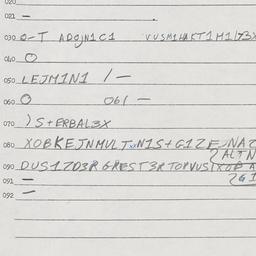 020
021 –
030 O-T ADOJN1C1 VUSM1HAKT1M1173X
040 O
050 LEJM1N1 / –
060 O 061 –
070 ) S+ERBAL3X
080 XOBKEJNMULT N1S+G1ZE NAZ
2 ALTN
090 DUS1ZO3R GREST3R TORVUS1XOBA
091 – 2G1
092 –